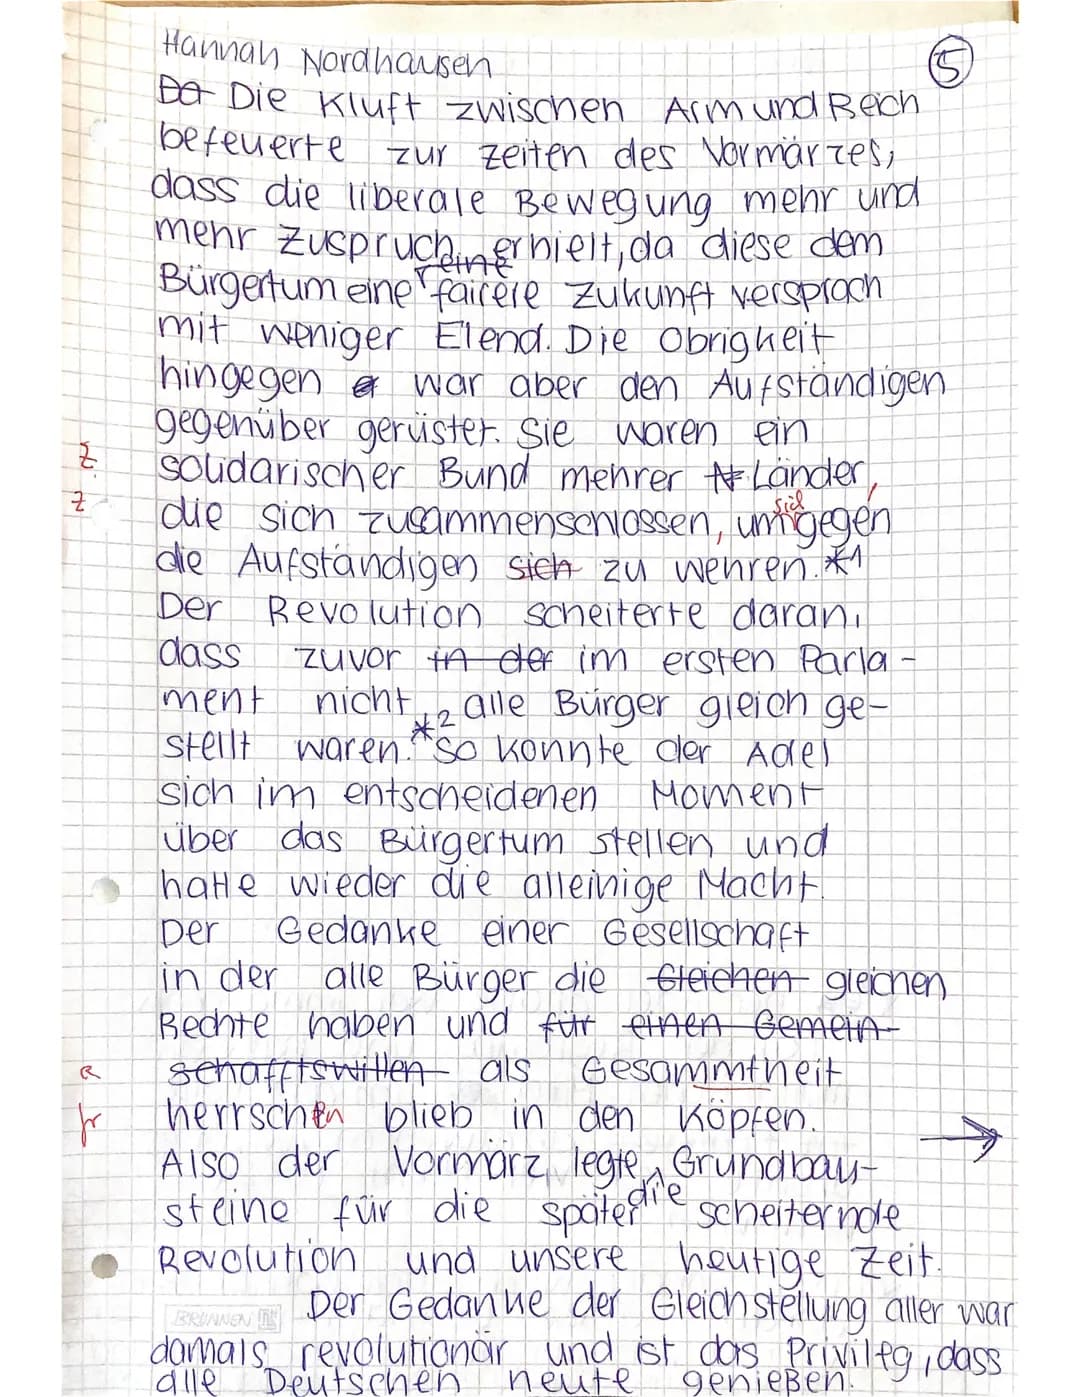 Hannah Nordhausen
5
Da Die Kluft zwischen Arm und Reich
befeuerte zur zeiten des Vormärzes,
dass die liberale Bewegung mehr und
mehr Zuspruch erhielt, da diese dem
eine
Bürgertum eine fairere Zukunft versprach
mit weniger Elend. Die Obrigkeit
hingegen war aber den Aufständigen
gegenüber gerüstet. Sie waren ein
Z solidarischer Bund mehrer Länder,
sich
Z die sich zusammenschlossen, um gegen
die Aufständigen sich zu wehren. *1
Der Revolution scheiterte daran,
dass zuvor in der im ersten Parla-
ment nicht alle Bürger gleich ge-
stellt waren. *2 So konnte der Adel
sich im entscheidenen Moment
über das Bürgertum stellen und
hatte wieder die alleinige Macht.
Der Gedanke einer Gesellschaft
in der alle Bürger die Gleichen gleichen
Rechte haben und für einen Gemein-
R schafftswillen als Gesammtheit
Gr herrschen blieb in den Köpfen. →
Also der Vormärz legte Grundbau-
die
steine für die später scheiternde
Revolution und unsere heutige Zeit.
BRUNNEN
Der Gedanke der Gleichstellung aller war
damals revolutionär und ist das Privileg, dass
alle Deutschen heute genießen.